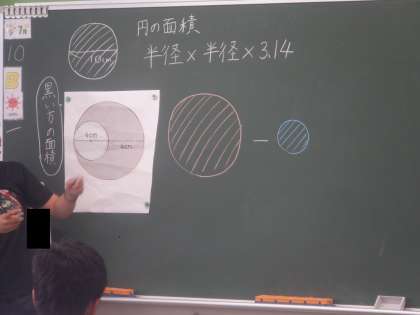 円の面積
半径×半径×3.14
10cm
黒い方の面積
4cm
4cm
－